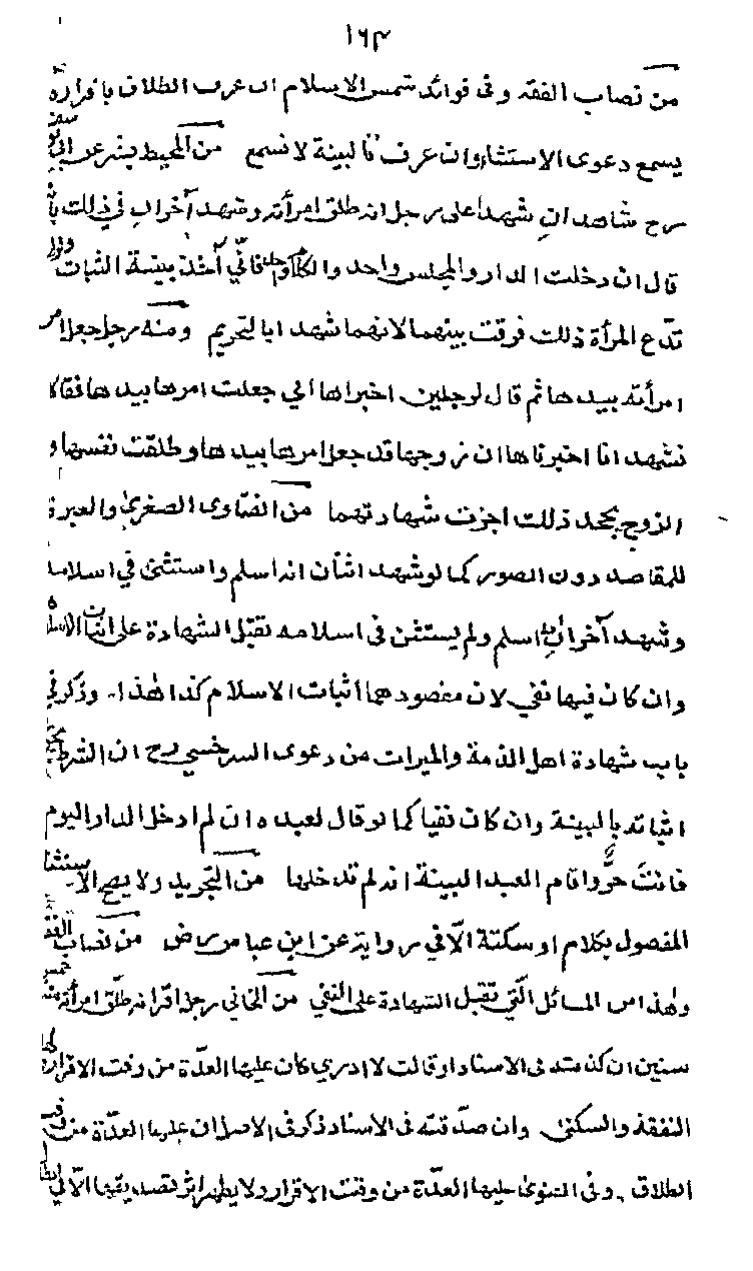 ١٦٣
من نصاب الفقه وفى فوائد شمس الاسلام ان عرف الطلاق باقراره
يسمع دعوى الاستثناء وان عرف بالبينة لا تسمع من المحيط بشر عن ابي يوسف
رح شاهدان شهدا على رجل انه طلق امرأته وشهد آخران في ذلك بانه
قال ان دخلت الدار والمجلس واحد والكلام واحد فاني آخذ ببينة الثبات ولو لم
تدّع المرأة ذلك فرقت بينهما لانهما شهدا بالتحريم ومنه رجل جعل امر
امرأته بيدها ثم قال لرجلين اخبراها اني جعلت امرها بيدها فقالا
نشهد انا اخبرناها ان زوجها قد جعل امرها بيدها وطلقت نفسها و
الزوج يجحد ذلك اجزت شهادتهما من الفتاوى الصغرى والعبرة
للمقاصد دون الصور كما لو شهد اثنان انه اسلم واستثنى في اسلامه
وشهد آخران انه اسلم ولم يستثن فى اسلامه تقبل الشهادة على اثبات الاسلام
وان كان فيها نفي لان مقصودهما اثبات الاسلام كذا هذا وذكر في
باب شهادة اهل الذمة والميراث من دعوى السرخسي رح ان الشرط يجوز
اثباته بالبينة وان كان نفيا كما لو قال لعبده ان لم ادخل الدار اليوم
فانتَ حرٌّ واقام العبد البينة انه لم تدخلها من التجريد ولا يصح الاستثناء
المفصول بكلام او سكتة الّا في رواية عن ابن عباس رض من نصاب الفقه
وهذا من المسائل الّتي تقبل الشهادة على النفي من الخاني رجل اقرّ انه طلّق امرأته منذ خمس
سنين ان كذبته فى الاسناد او قالت لا ادري كان عليها العدّة من وقت الاقرار ولها
النفقة والسكنى وان صدّقته فى الاسناد ذكر فى الاصل ان عليها العدّة من وقت
الطلاق وفى الفتوى عليها العدّة من وقت الاقرار ولا يظهر اثر تصديقها الّا في ابطال